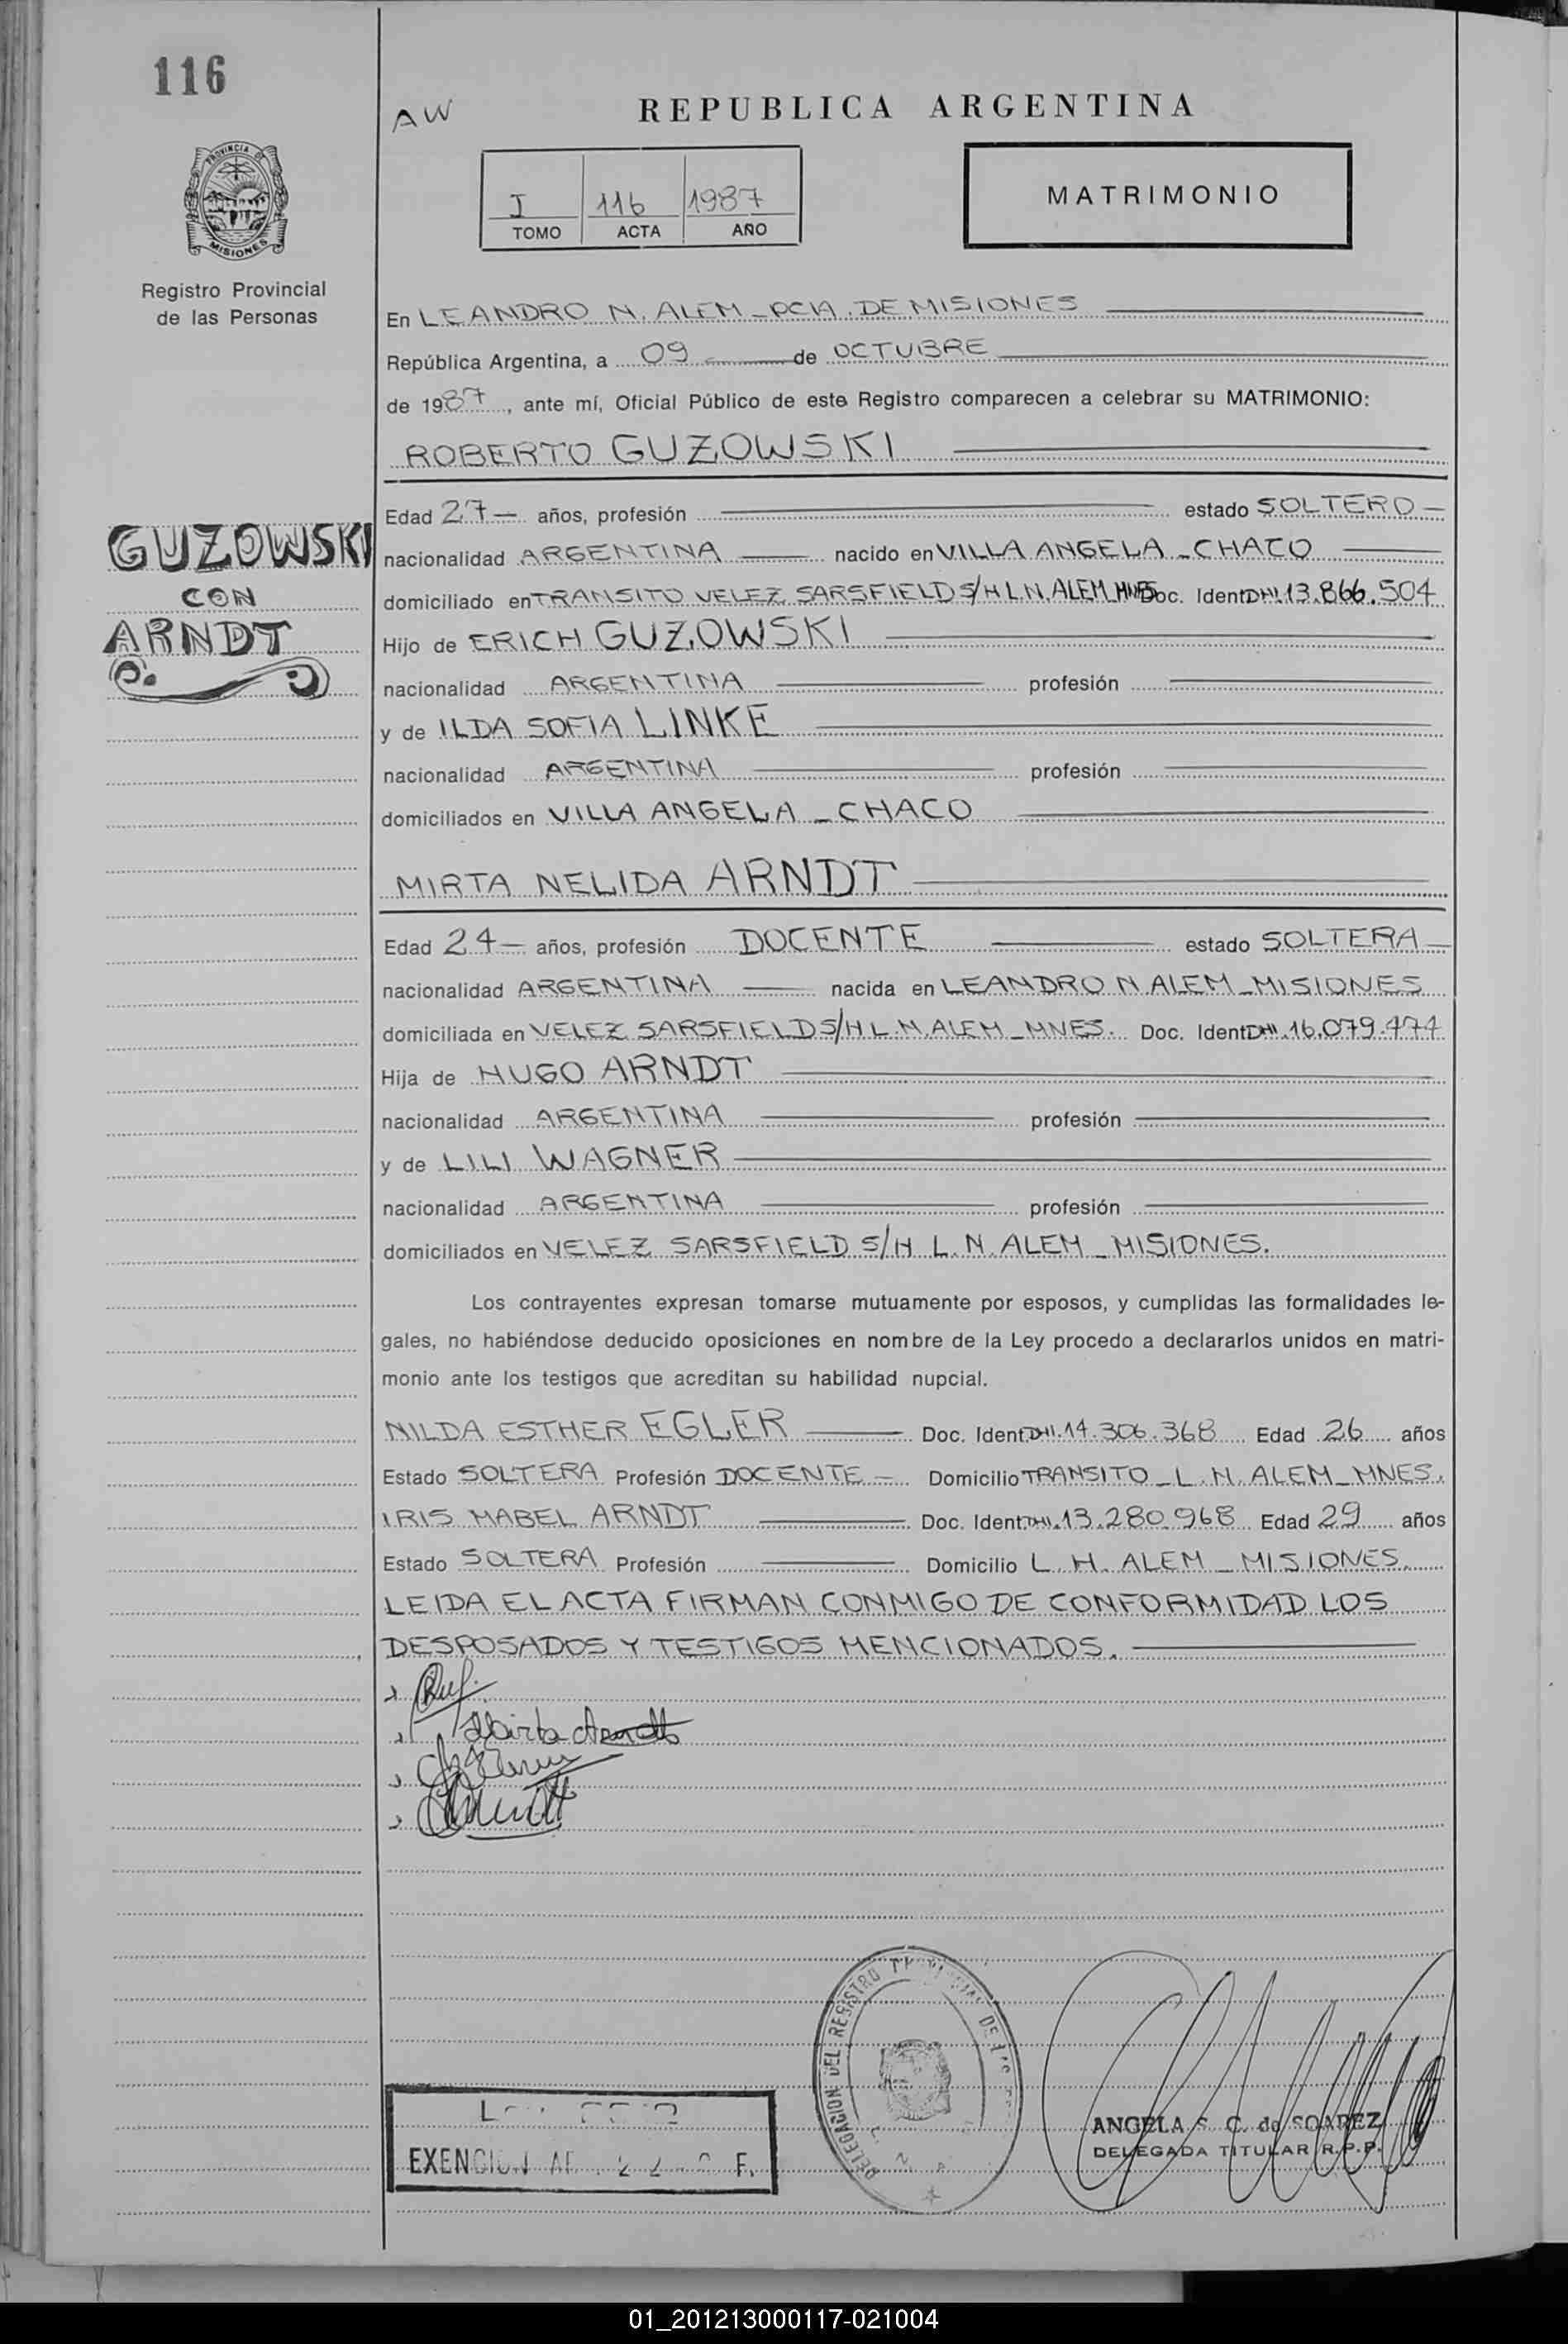 116
AW
REPUBLICA ARGENTINA
I 116 1987
TOMO ACTA AÑO
MATRIMONIO
PROVINCIA DE
MISIONES
Registro Provincial
de las Personas
En LEANDRO N. ALEM - PCIA. DE MISIONES
República Argentina, a 09 de OCTUBRE
de 1987, ante mí, Oficial Público de este Registro comparecen a celebrar su MATRIMONIO:
ROBERTO GUZOWSKI
GUZOWSKI
CON
ARNDT
Edad 27- años, profesión estado SOLTERO-
nacionalidad ARGENTINA nacido en VILLA ANGELA - CHACO
domiciliado en TRANSITO VELEZ SARSFIELD S/N L.N. ALEM MNES Doc. Ident DNI. 13.866.504
Hijo de ERICH GUZOWSKI
nacionalidad ARGENTINA profesión
y de ILDA SOFIA LINKE
nacionalidad ARGENTINA profesión
domiciliados en VILLA ANGELA - CHACO
MIRTA NELIDA ARNDT
Edad 24- años, profesión DOCENTE estado SOLTERA-
nacionalidad ARGENTINA nacida en LEANDRO N ALEM - MISIONES
domiciliada en VELEZ SARSFIELD S/N L.N. ALEM - MNES. Doc. Ident DNI. 16.079.474
Hija de HUGO ARNDT
nacionalidad ARGENTINA profesión
y de LILI WAGNER
nacionalidad ARGENTINA profesión
domiciliados en VELEZ SARSFIELD S/N L.N. ALEM - MISIONES.
Los contrayentes expresan tomarse mutuamente por esposos, y cumplidas las formalidades le-
gales, no habiéndose deducido oposiciones en nombre de la Ley procedo a declararlos unidos en matri-
monio ante los testigos que acreditan su habilidad nupcial.
NILDA ESTHER EGLER Doc. Ident DNI. 14.306.368 Edad 26 años
Estado SOLTERA Profesión DOCENTE - Domicilio TRANSITO - L.N. ALEM - MNES.
IRIS MABEL ARNDT Doc. Ident. DNI. 13.280.968 Edad 29 años
Estado SOLTERA Profesión Domicilio L.N. ALEM - MISIONES.
LEIDA EL ACTA FIRMAN CONMIGO DE CONFORMIDAD LOS
DESPOSADOS Y TESTIGOS MENCIONADOS.
Mirta Arndt
DELEGACION DEL REGISTRO
EXENCION
ANGELA S. C. de SOAREZ
DELEGADA TITULAR R.P.P.
01_201213000117-021004